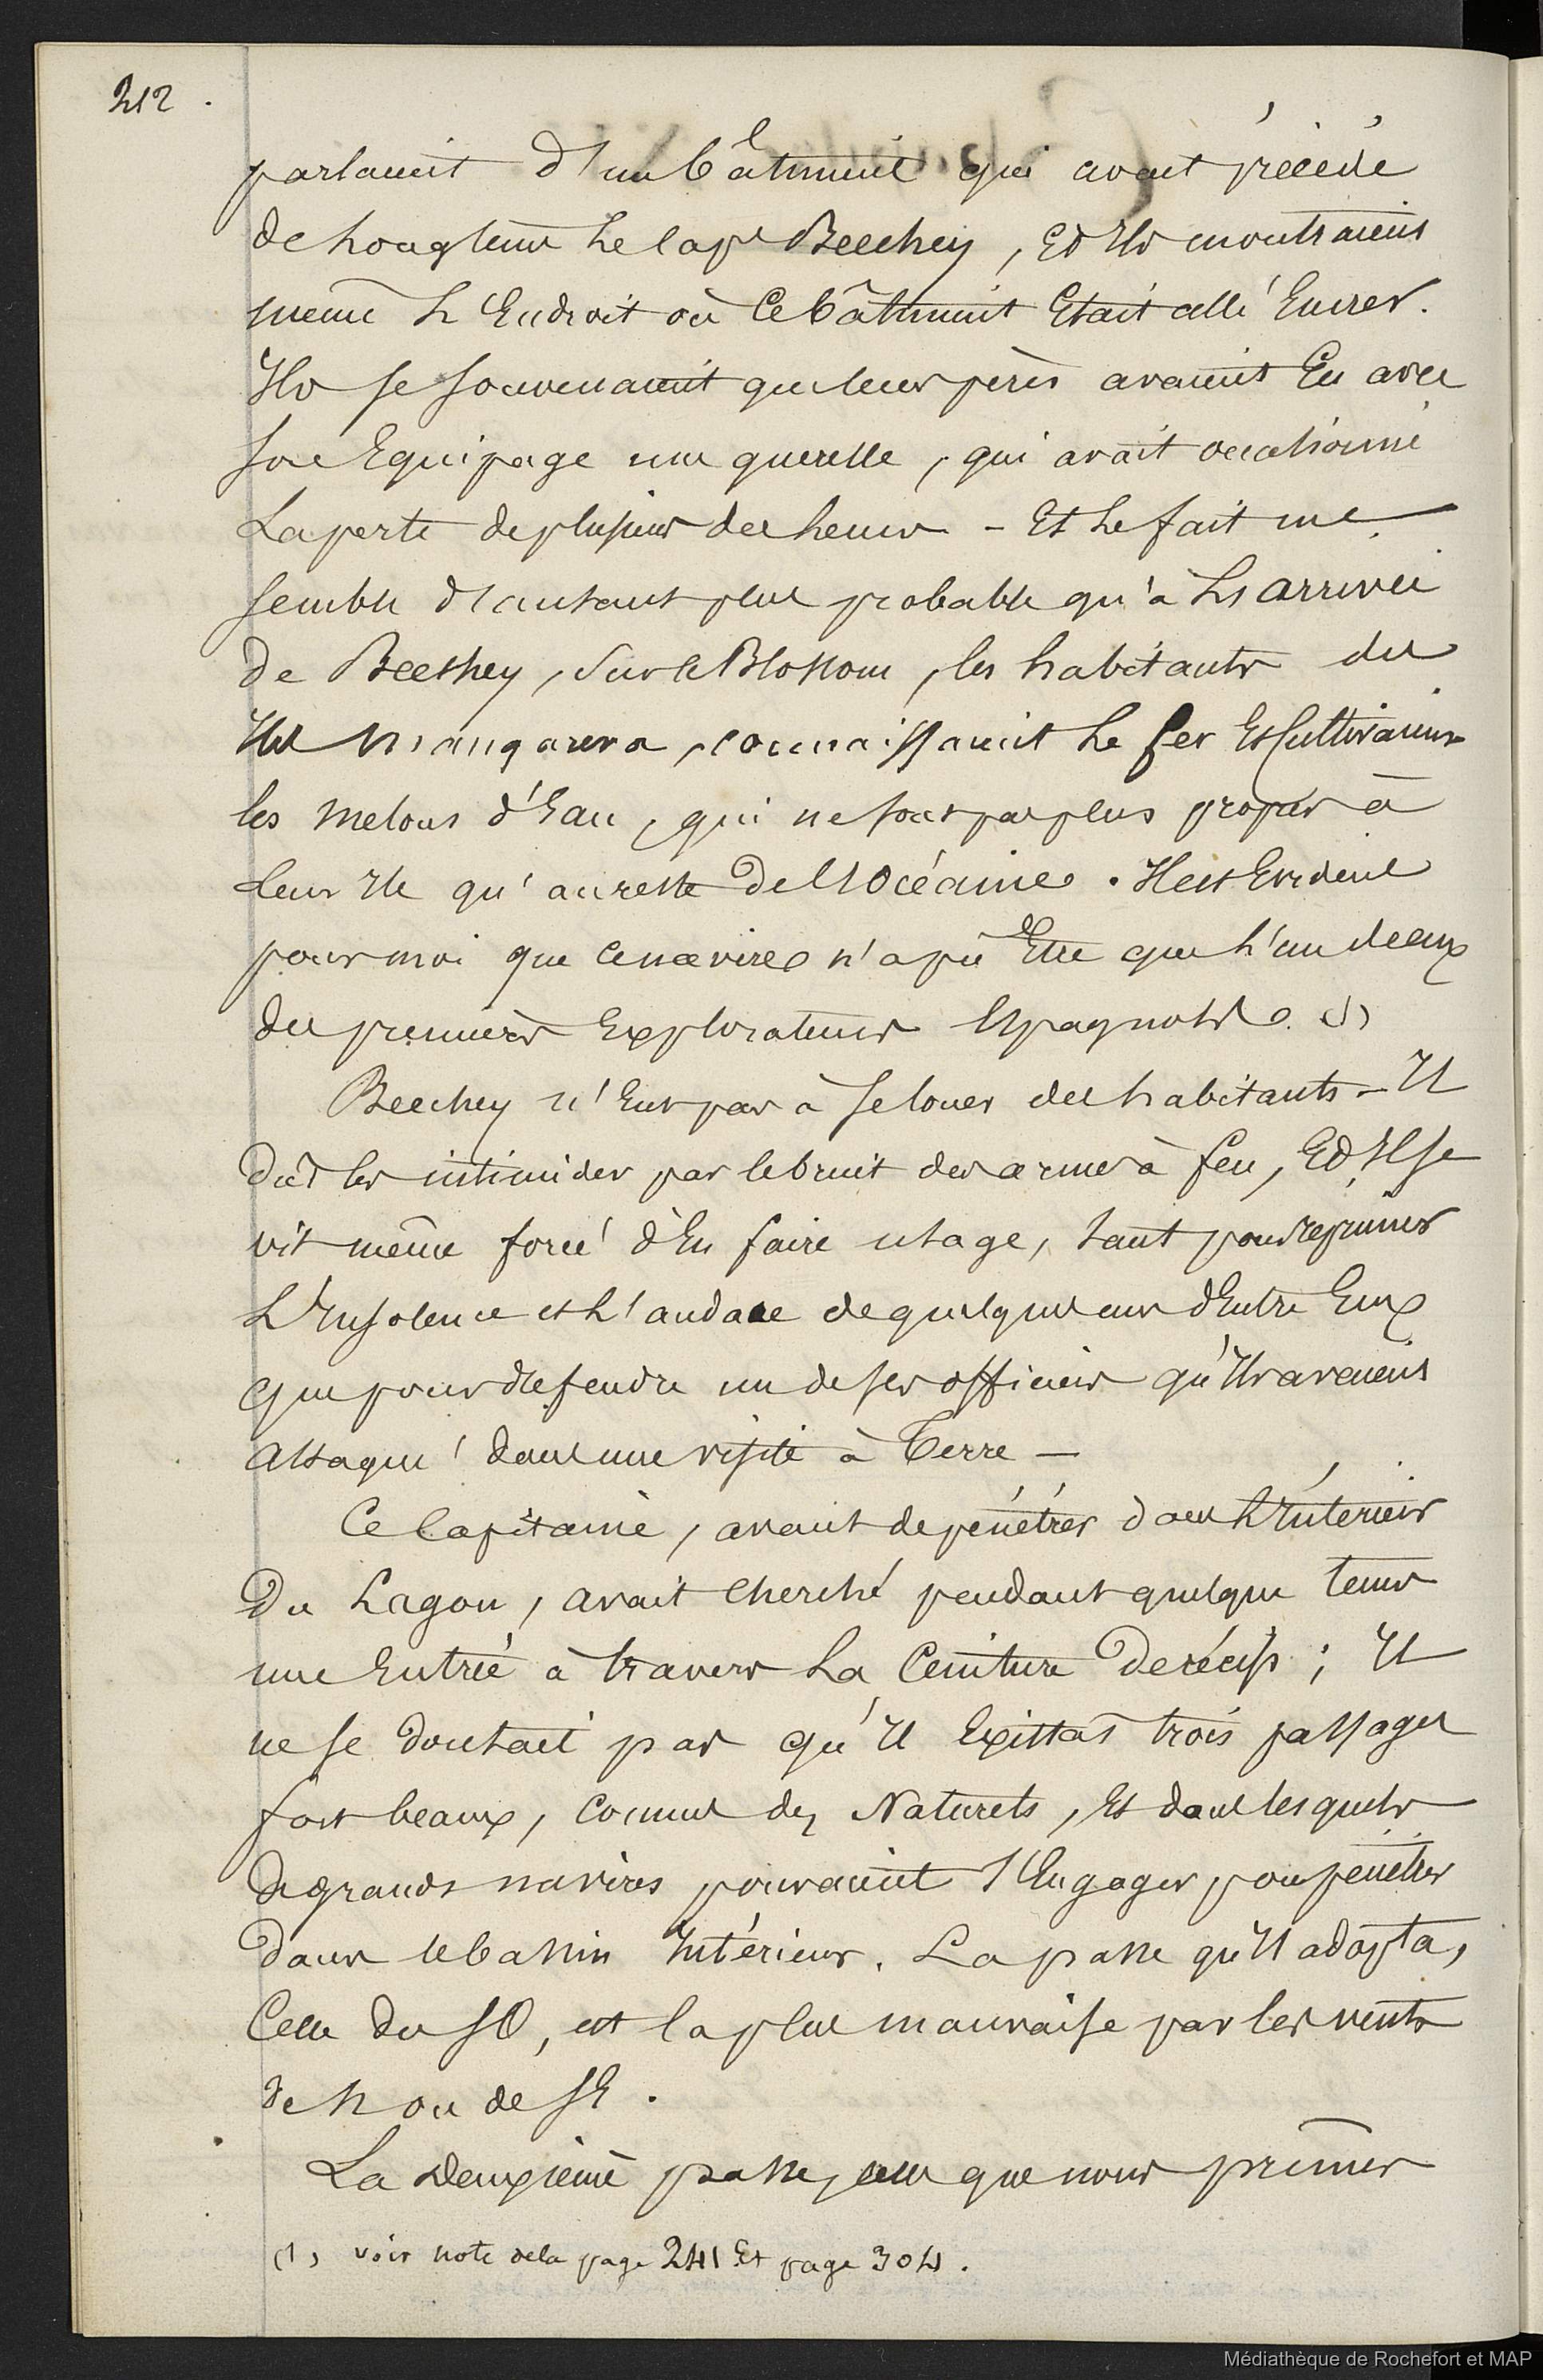 212.
parlaient d'un bâtiment qui avait précédé
de longtems le Cape Beechey, Et Ils montraient
même L'Endroit où Ce bâtiment Etait allé Encrer.
Ils se souvenaient que leurs pères avaient Eu avec
son Equipage une querelle, qui avait occasionné
La perte de plusieurs des leurs - Et Le fait me
semble d'autant plus probable qu'à L'arrivée
de Beechey, sur le Blossom, les habitants des
Iles Mangareva, connaissaient Le fer Et Cultivaient
les melons d'Eau, qui ne sont pas plus propres à
Leur Ile qu'au reste de l'Océanie. Il est Evident
pour moi que ce navire n'a pu Etre que L'un deux
des premiers Explorateurs Espagnols. (1)
Beechey n'Eut pas à se louer des habitants - Il
dut les intimider par le bruit des armes à feu, Et Il se
vit même forcé d'En faire usage, tant pour réprimer
L'Insolence et L'audace de quelques uns d'Entre Eux
que pour défendre un de ses officiers qu'Ils avaient
attaqué dans une visite à Terre -
Ce Capitaine, avant de pénétrer dans L'Intérieur
Du Lagon, avait Cherché pendant quelque tems
une Entrée à travers La Ceinture De récifs ; Il
ne se Doutait pas qu'Il Existat trois passages
fort beaux, Connus des Naturels, Et dans lesquels
de grands navires pouvaient s'Engager pour pénétrer
dans le bassin Intérieur. La passe qu'Il adopta,
Celle du SO, est la plus mauvaise par les vents
de N ou de SE.
La Deuxième passe, celle que nous primes
(1) voir note de la page 241 Et page 304.
Médiathèque de Rochefort et MAP